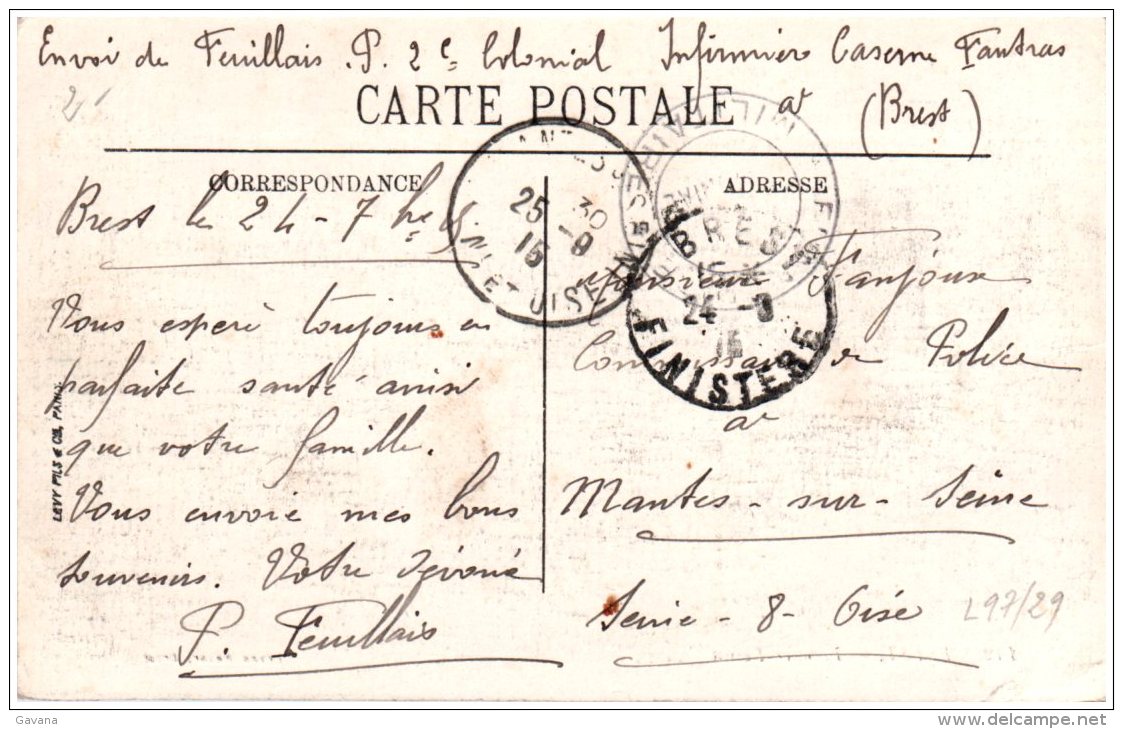 Envoi de Feuillais. P. 2e Colonial Infirmière Caserne Fautras
à (Brest)
CARTE POSTALE
CORRESPONDANCE
Brest le 24-7bre 15
Vous esperé toujours en
parfaite santé ainsi
que votre famille.
Vous envoie mes bons
souvenirs. Votre dévoué
P. Feuillais
LEVY FILS & CIE, PARIS
ADRESSE
Monsieur Faujoux
Commissaire de Police
à
Mantes-sur-Seine
Seine-&-Oise
L97/29
25 30
15 9
ET OISE
MILITAIRES
BREST
24 -9
15
FINISTERE
Gavana
delcampe.net